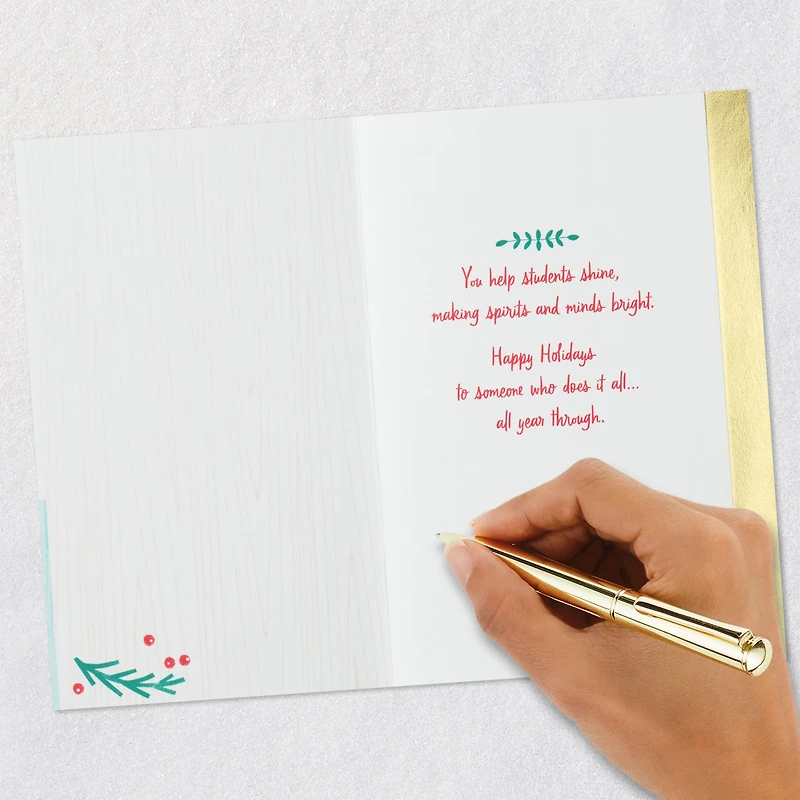 You help students shine,
making spirits and minds bright.
Happy Holidays
to someone who does it all...
all year through.